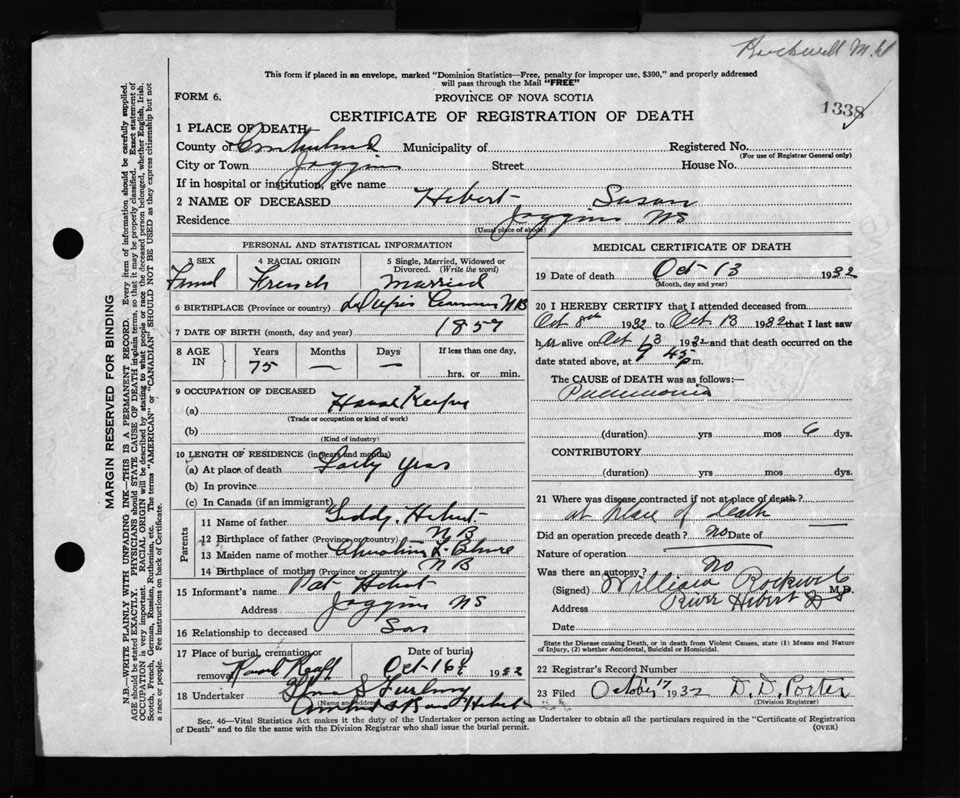 Rockwell M.D
This form if placed in an envelope, marked "Dominion Statistics—Free, penalty for improper use, $300," and properly addressed
will pass through the Mail "FREE"
FORM 6.
PROVINCE OF NOVA SCOTIA
1338
CERTIFICATE OF REGISTRATION OF DEATH
1 PLACE OF DEATH
County of Cumberland Municipality of Registered No.
(For use of Registrar General only)
City or Town Joggins Street House No.
If in hospital or institution, give name
2 NAME OF DECEASED Hebert Susan
Residence Joggins NS
(Usual place of abode)
PERSONAL AND STATISTICAL INFORMATION
3 SEX 4 RACIAL ORIGIN 5 Single, Married, Widowed or
Divorced. (Write the word)
French Married
6 BIRTHPLACE (Province or country) N B
7 DATE OF BIRTH (month, day and year) 1857
8 AGE IN Years Months Days If less than one day,
75 — — hrs. or min.
9 OCCUPATION OF DECEASED
(a) House Keeper
(Trade or occupation or kind of work)
(b)
(Kind of industry)
10 LENGTH OF RESIDENCE (in years and months)
(a) At place of death Forty yrs
(b) In province
(c) In Canada (if an immigrant)
Parents
11 Name of father Hebert
12 Birthplace of father (Province or country) N B
13 Maiden name of mother
14 Birthplace of mother (Province or country) N B
15 Informant's name Pat Hebert
Address Joggins NS
16 Relationship to deceased Son
17 Place of burial, cremation or Date of burial
removal Oct 16 1932
18 Undertaker
(Name and address)
MEDICAL CERTIFICATE OF DEATH
19 Date of death Oct 13 1932
(Month, day and year)
20 I HEREBY CERTIFY that I attended deceased from
Oct 8th 1932 to Oct 13 1932 that I last saw
her alive on Oct 13 1932 and that death occurred on the
date stated above, at 9 45 p.m.
The CAUSE OF DEATH was as follows:
Pneumonia
(duration) yrs mos 6 dys.
CONTRIBUTORY
(duration) yrs mos dys.
21 Where was disease contracted if not at place of death?
at place of death
Did an operation precede death? no Date of
Nature of operation
Was there an autopsy? no
(Signed) William Rockwell M.D.
Address River Hebert
Date
State the Disease causing Death, or in death from Violent Causes, state (1) Means and Nature
of Injury, (2) whether Accidental, Suicidal or Homicidal.
22 Registrar's Record Number
23 Filed October 17 1932 D. D. Porter
(Division Registrar)
Sec. 46—Vital Statistics Act makes it the duty of the Undertaker or person acting as Undertaker to obtain all the particulars required in the "Certificate of Registration
of Death" and to file the same with the Division Registrar who shall issue the burial permit.
(OVER)
MARGIN RESERVED FOR BINDING
N.B.—WRITE PLAINLY WITH UNFADING INK—THIS IS A PERMANENT RECORD. Every item of information should be carefully supplied.
AGE should be stated EXACTLY. PHYSICIANS should STATE CAUSE OF DEATH in plain terms, so that it may be properly classified. Exact statement of
OCCUPATION is very important. RACIAL ORIGIN will be described by stating to what people or race the deceased person belonged, whether English, Irish,
Scotch, French, German, Russian, Ruthenian, etc. The terms "AMERICAN" or "CANADIAN" SHOULD NOT BE USED as they express citizenship but not
a race or people. See instructions on back of Certificate.